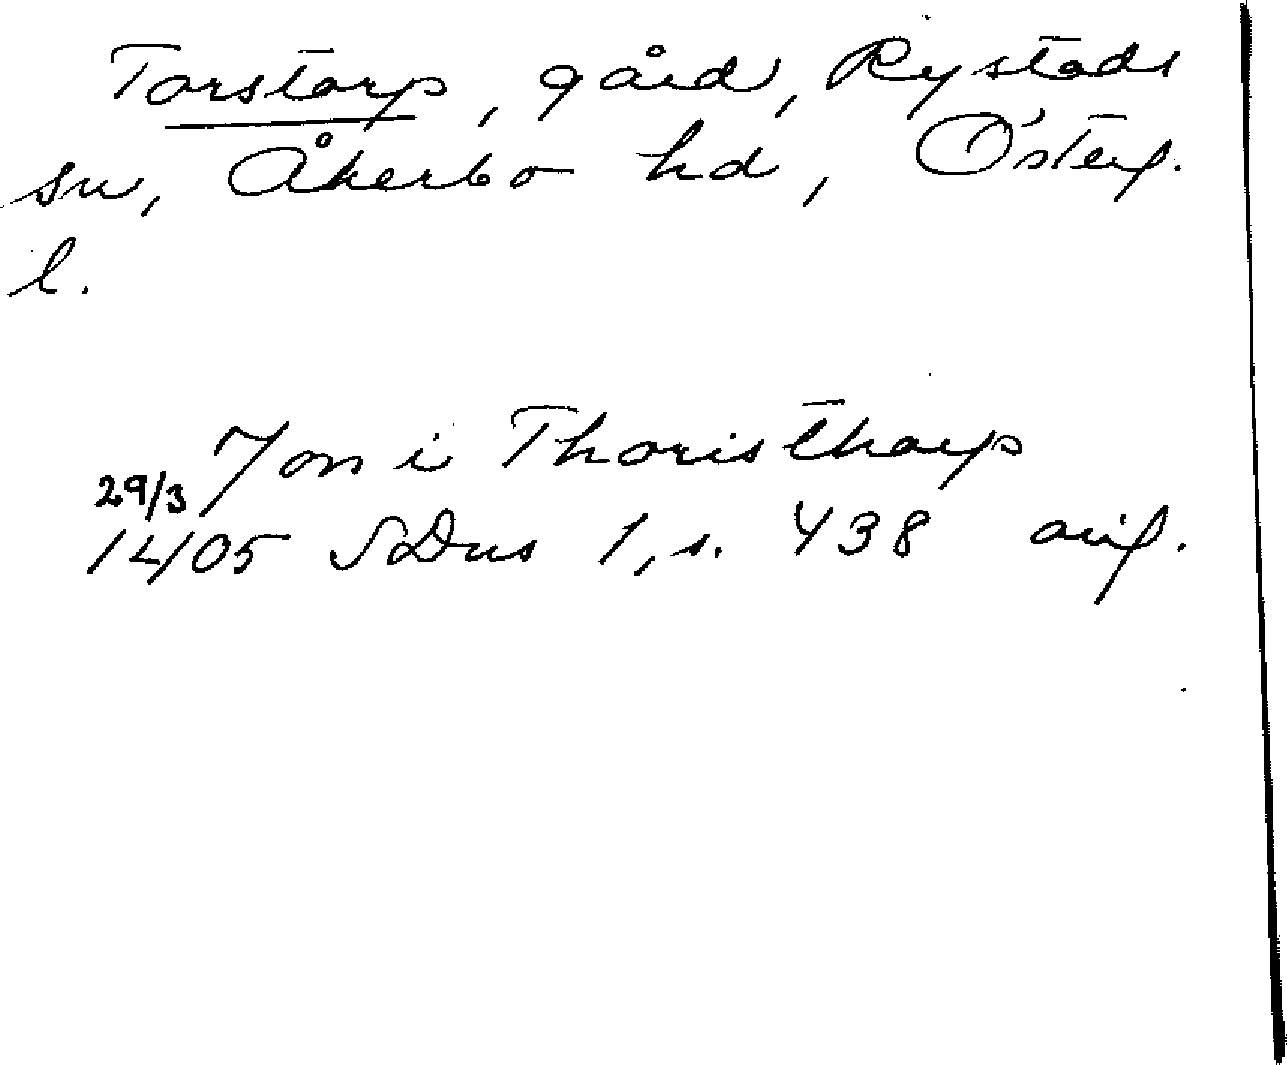 Torstorp, gård, Rystads
sn, Åkerbo hd, Österg.
l.
Jon i Thoristhorp
29/3
1405 SDns 1, s. 438 avig.